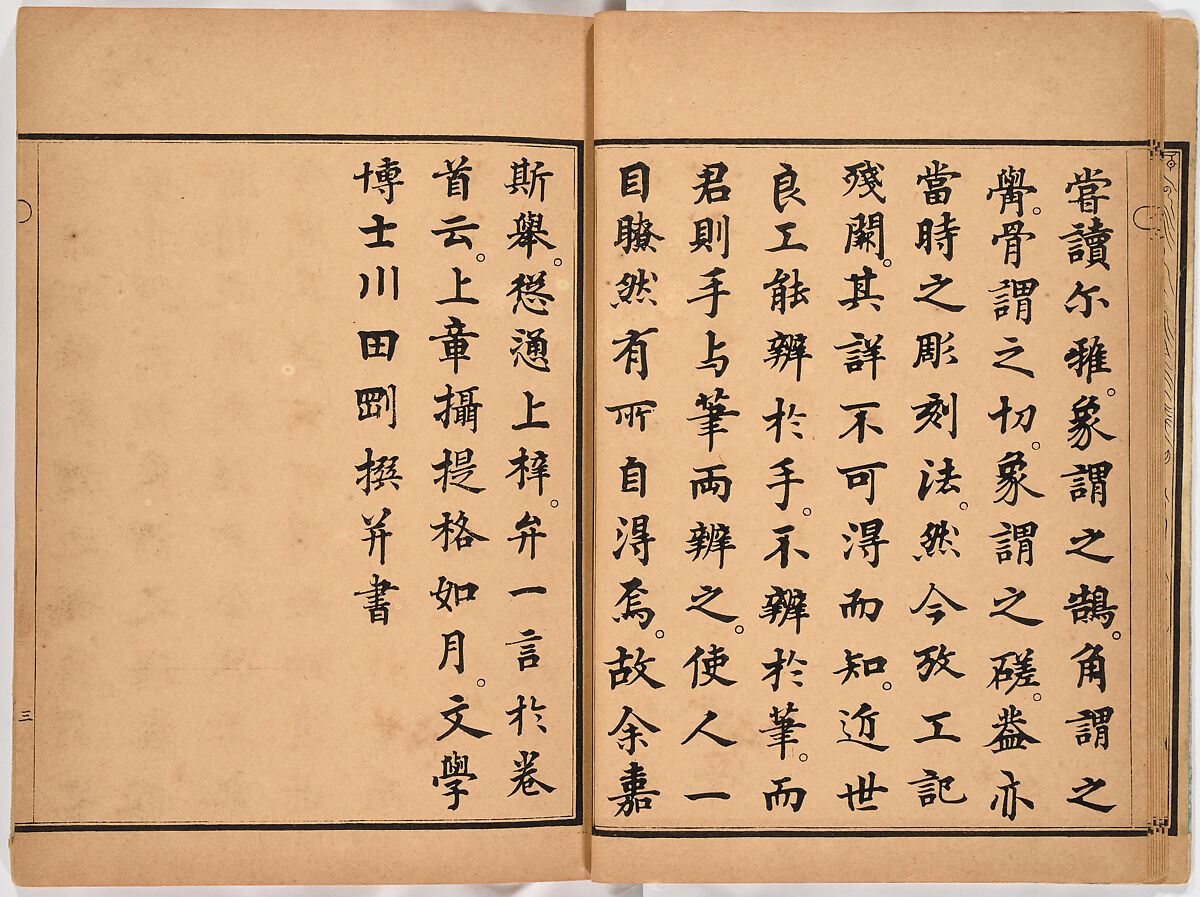 嘗讀尒雅。象謂之鵠。角謂之
觷。骨謂之切。象謂之磋。葢亦
當時之彫刻法。然今攷工記
殘闕。其詳不可得而知。近世
良工能辨於手。不辨於筆。而
君則手与筆両辨之。使人一
目瞭然有所自得焉。故余嘉
斯舉。慫慂上梓。弁一言於卷
首云。上章攝提格如月。文學
博士川田剛撰并書
三